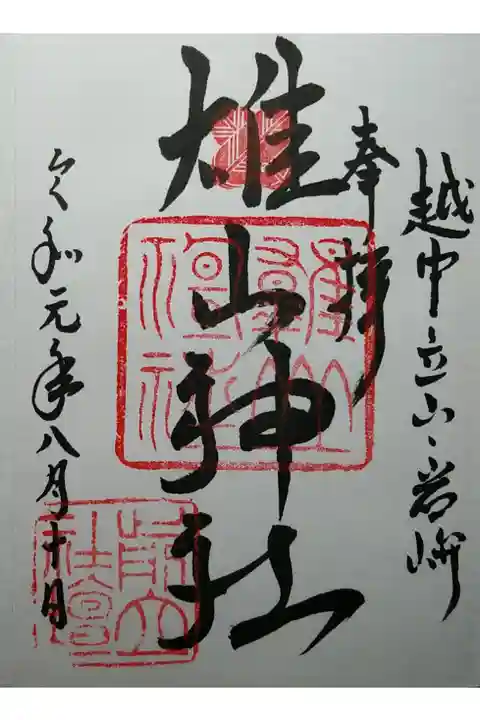 越中立山、岩峅
奉拝
雄山神社
令和元年八月十日
前立社壇